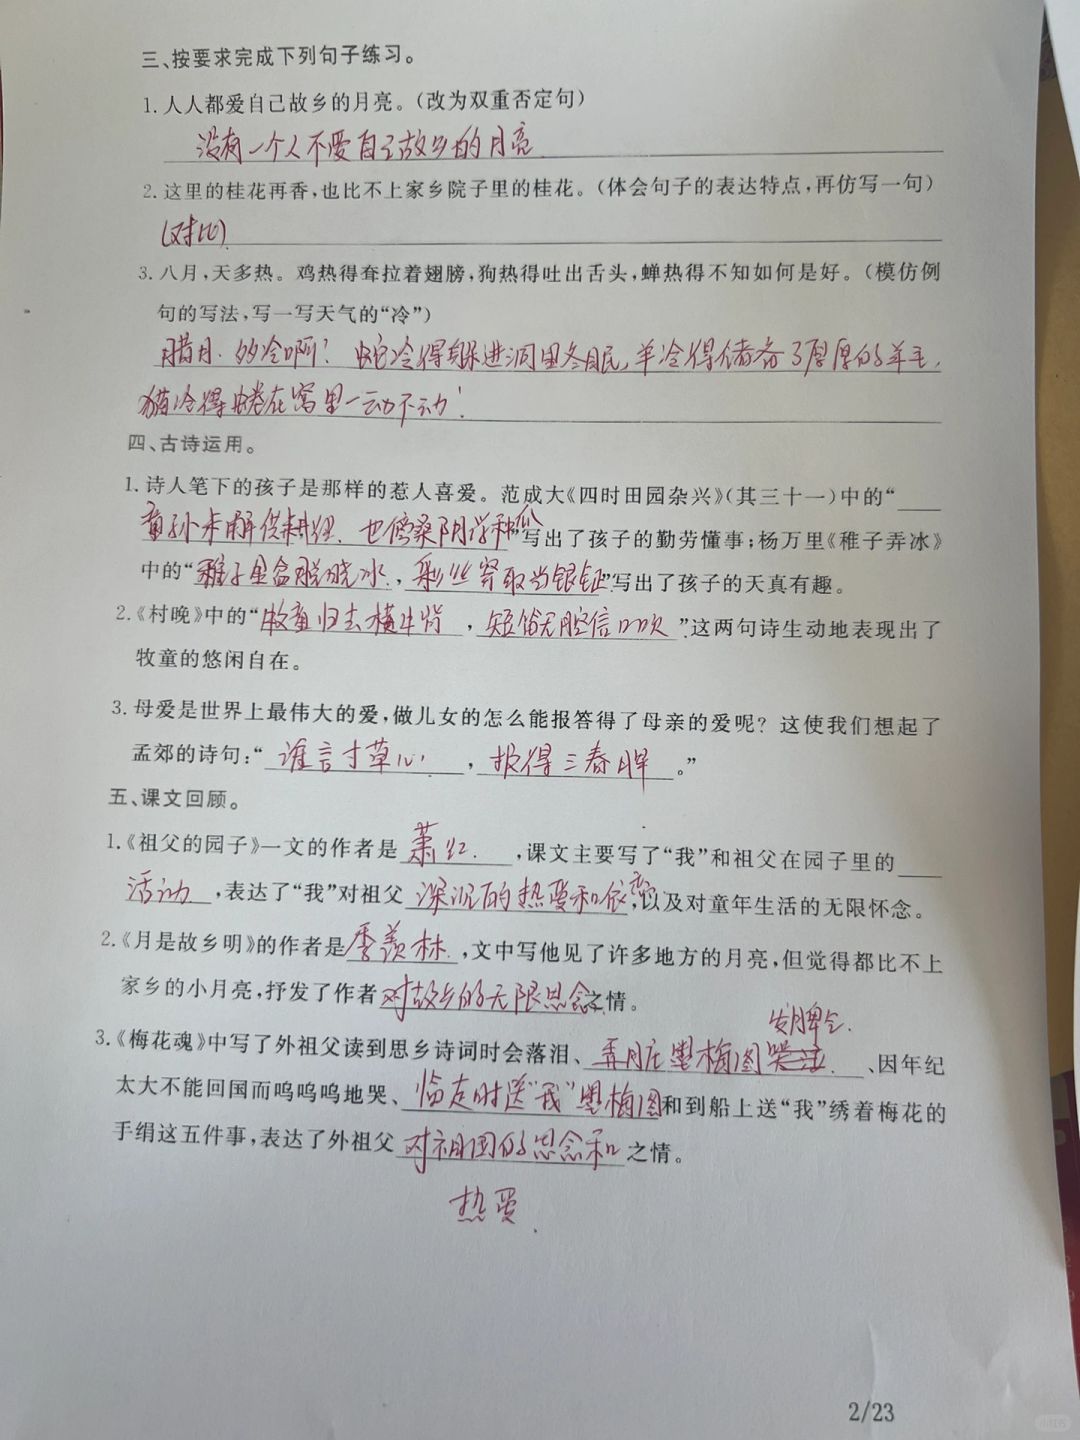 三、按要求完成下列句子练习。
1. 人人都爱自己故乡的月亮。(改为双重否定句)
没有一个人不爱自己故乡的月亮
2. 这里的桂花再香,也比不上家乡院子里的桂花。(体会句子的表达特点,再仿写一句)
(对比)
3. 八月,天多热。鸡热得耷拉着翅膀,狗热得吐出舌头,蝉热得不知如何是好。(模仿例
句的写法,写一写天气的“冷”)
腊月,多冷啊!蛇冷得躲进洞里冬眠,羊冷得储备了厚厚的羊毛,
猫冷得蜷在窝里一动不动!
四、古诗运用。
1. 诗人笔下的孩子是那样的惹人喜爱。范成大《四时田园杂兴》(其三十一)中的“
童孙未解供耕织,也傍桑阴学种瓜”写出了孩子的勤劳懂事;杨万里《稚子弄冰》
中的“稚子金盆脱晓冰,彩丝穿取当银钲”写出了孩子的天真有趣。
2.《村晚》中的“牧童归去横牛背,短笛无腔信口吹”这两句诗生动地表现出了
牧童的悠闲自在。
3. 母爱是世界上最伟大的爱,做儿女的怎么能报答得了母亲的爱呢?这使我们想起了
孟郊的诗句:“谁言寸草心,报得三春晖。”
五、课文回顾。
1.《祖父的园子》一文的作者是萧红,课文主要写了“我”和祖父在园子里的
活动,表达了“我”对祖父深沉的热爱和依恋,以及对童年生活的无限怀念。
2.《月是故乡明》的作者是季羡林,文中写他见了许多地方的月亮,但觉得都比不上
家乡的小月亮,抒发了作者对故乡的无限思念之情。
发脾气.
3.《梅花魂》中写了外祖父读到思乡诗词时会落泪、弄脏墨梅图、因年纪
太大不能回国而呜呜呜地哭、临走时送“我”墨梅图和到船上送“我”绣着梅花的
手绢这五件事,表达了外祖父对祖国的思念和之情。
热爱.
2/23